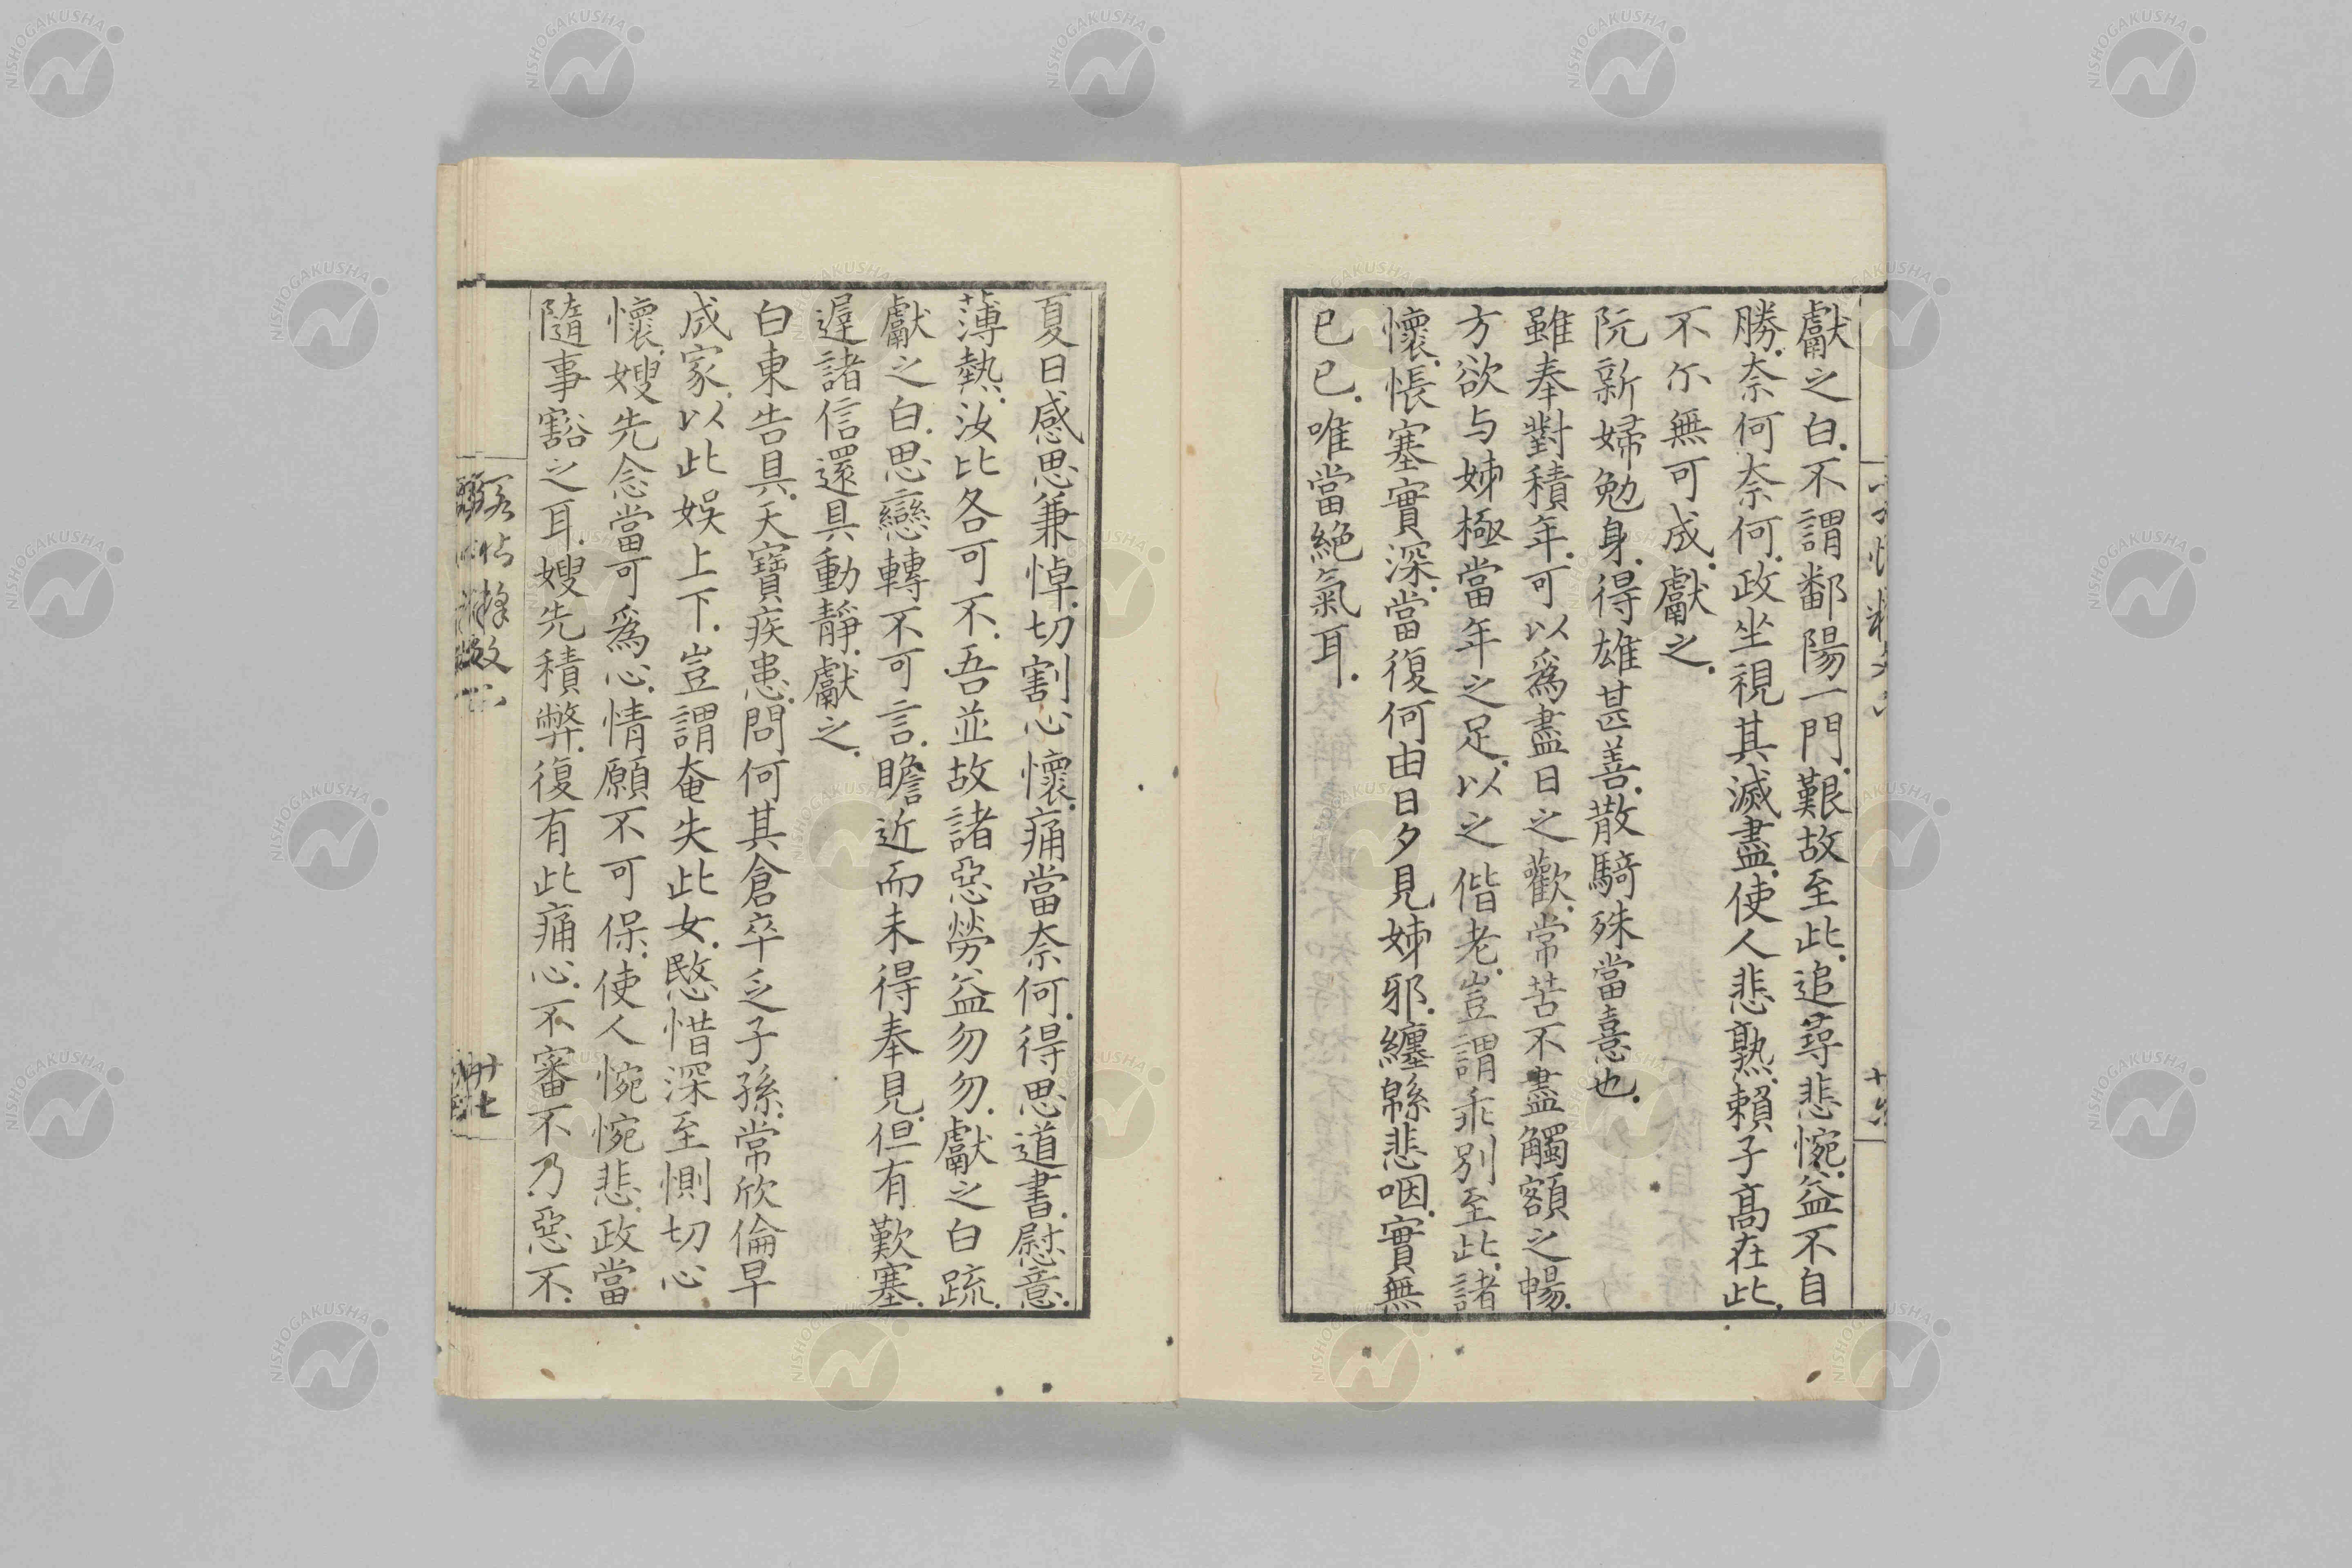 獻之白.不謂鄱陽一門.艱故至此.追尋悲惋.益不自
勝.奈何奈何.政坐視其滅盡.使人悲熟.賴子高在此.
不尒無可成.獻之.
阮新婦勉身.得雄甚善.散騎殊當憙也.
雖奉對積年.可以爲盡日之歡.常苦不盡觸額之暢.
方欲与姊極當年之足.以之偕老.豈謂乖別至此.諸
懷.悵塞實深.當復何由日夕見姊邪.纏緜悲咽.實無
已已.唯當絕氣耳.
夏日感思兼悼.切割心懷.痛當奈何.得思道書.慰意.
薄熱.汝比各可不.吾並故諸惡勞益勿勿.獻之白疏.
獻之白.思戀轉不可言.瞻近而未得奉見.但有歎塞.
遲諸信還具動靜.獻之.
白東告具.天寶疾患.問何其倉卒乏子孫.常欣倫早
成家.以此娛上下.豈謂奄失此女.愍惜深至惻切心
懷.嫂先念當可爲心.情願不可保.使人惋惋悲.政當
隨事豁之耳.嫂先積弊.復有此痛心.不審不乃惡不.
NISHOGAKUSHA